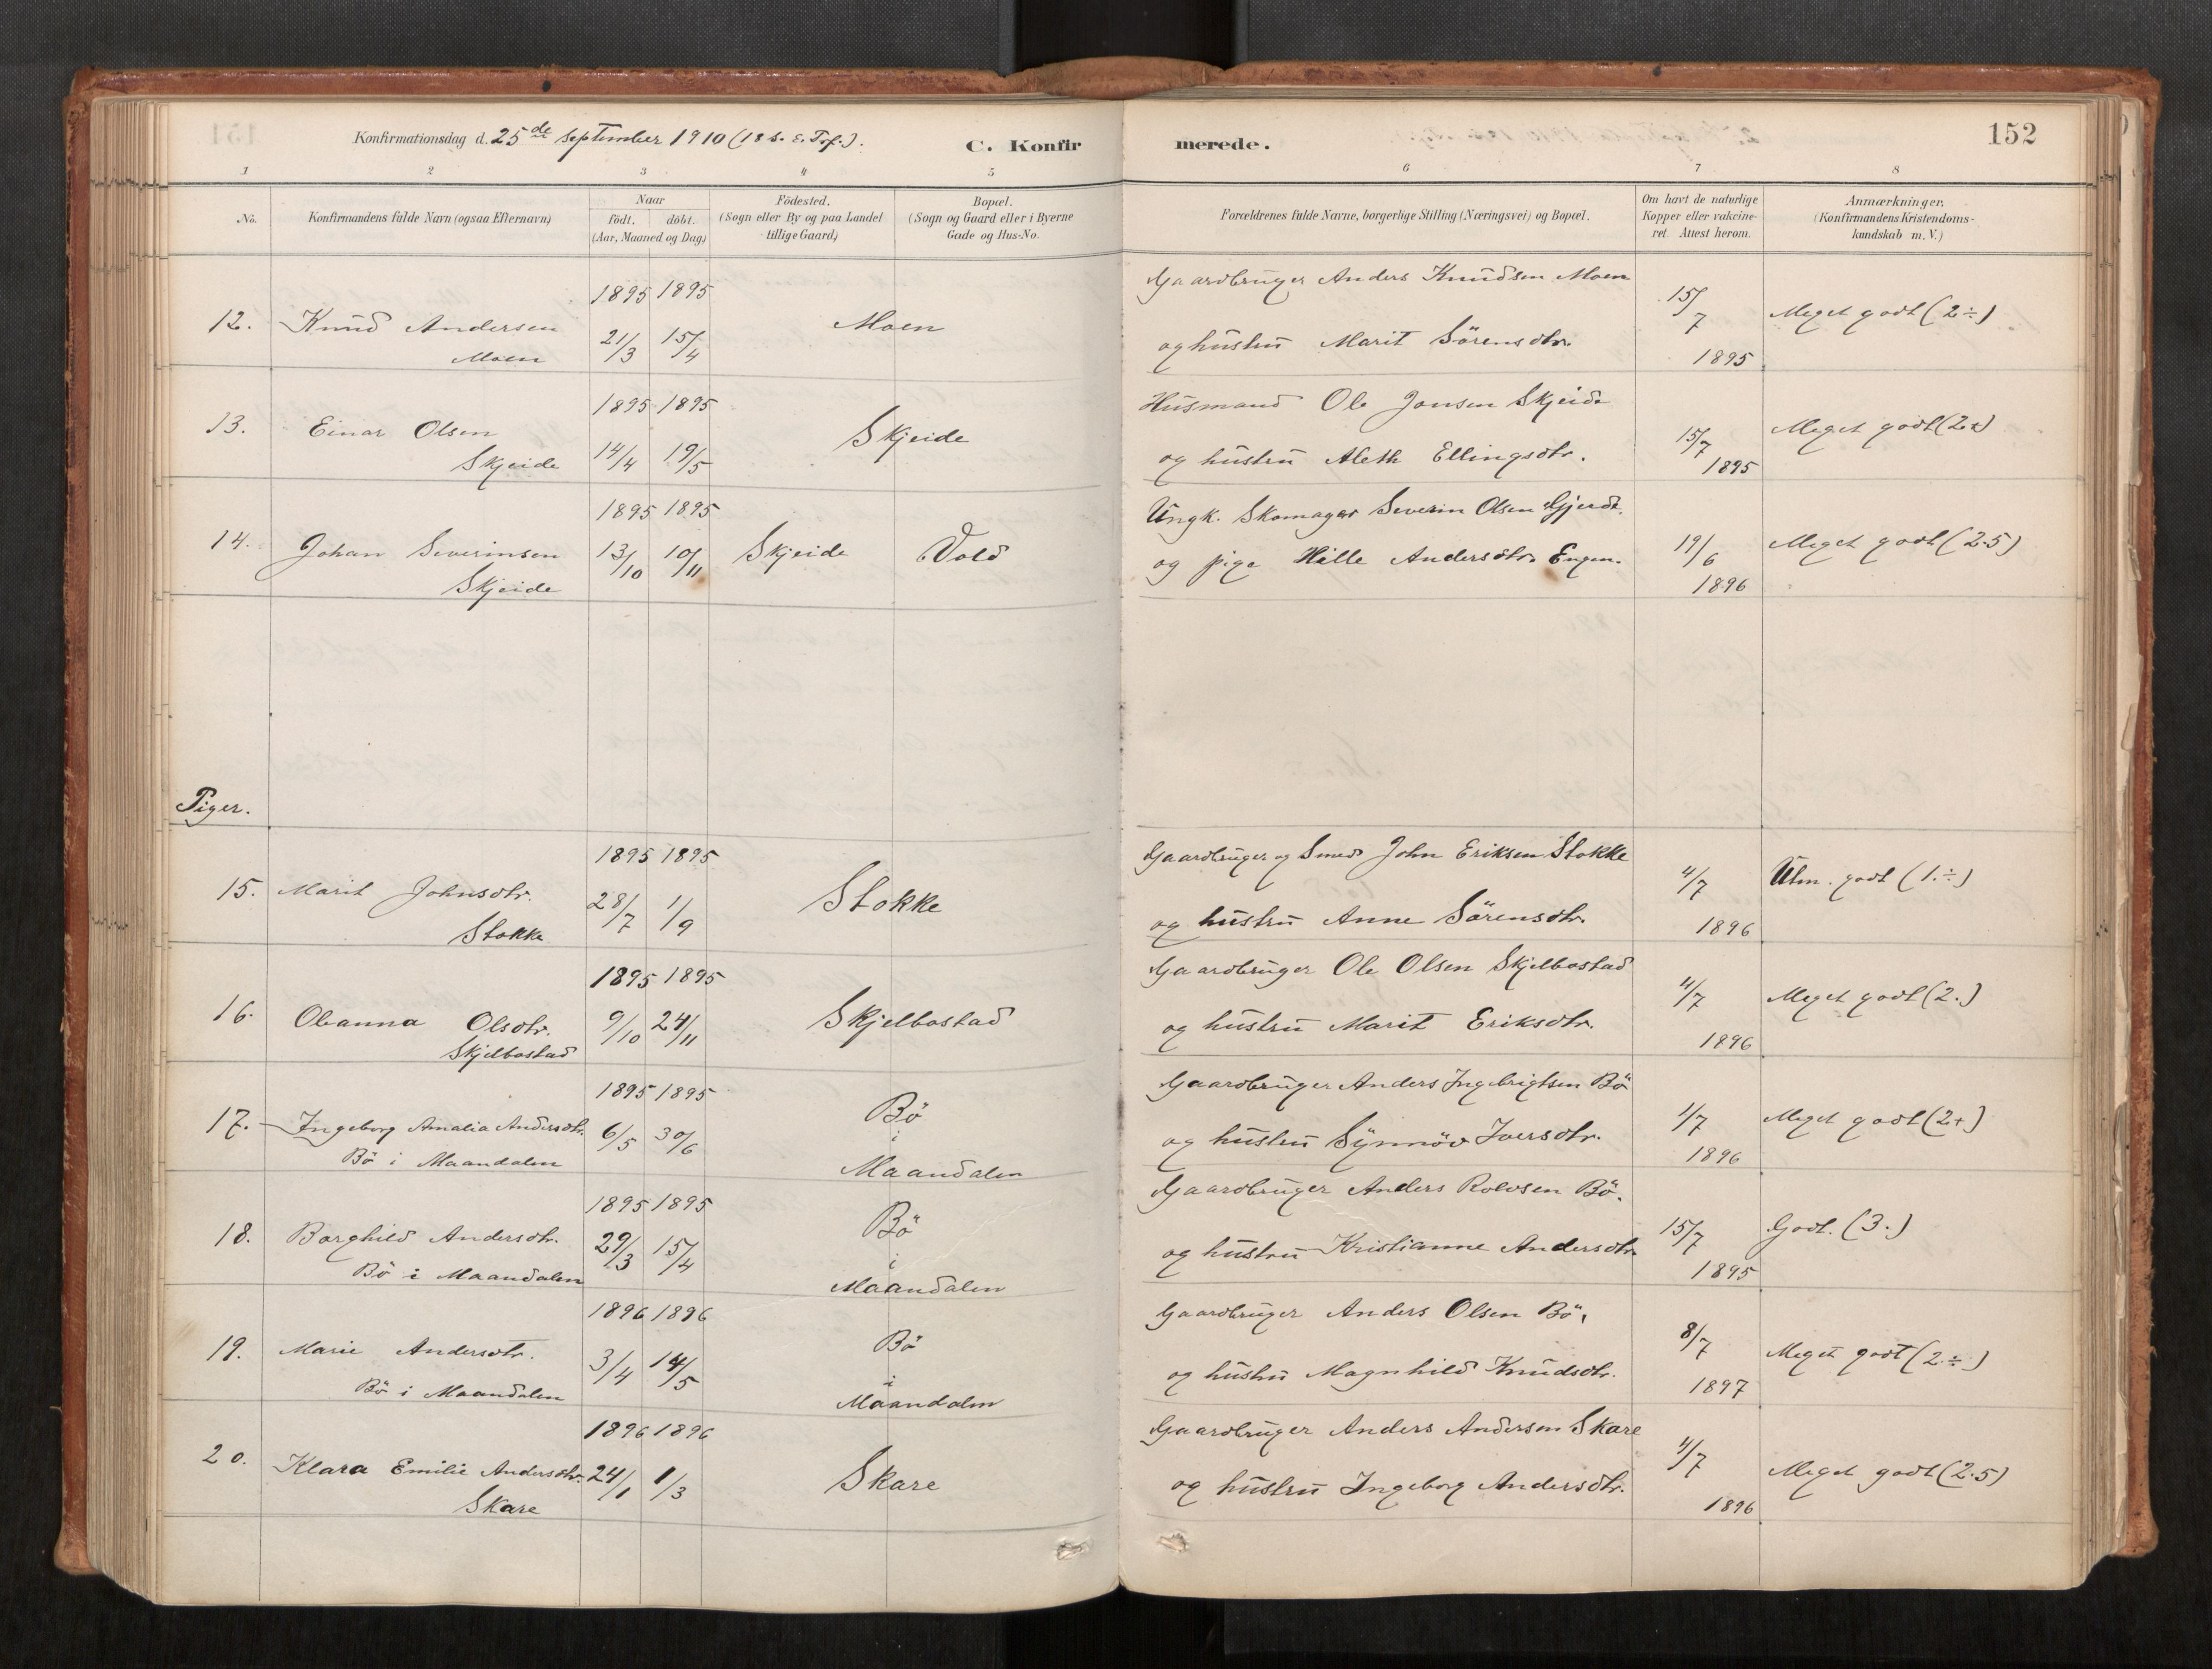 Konfirmationsdag d. 25de september 1910 (18 s. e. Tref.).
C. Konfirmerede.
152
1 2 3 4 5 6 7 8
No.
Konfirmandens fulde Navn (ogsaa Efternavn)
Naar
født. døbt.
(Aar, Maaned og Dag)
Fødested.
(Sogn eller By og paa Landet
tillige Gaard)
Bopæl.
(Sogn og Gaard eller i Byerne
Gade og Hus-No.
Forældrenes fulde Navne, borgerlige Stilling (Næringsvei) og Bopæl.
Om havt de naturlige
Kopper eller vakcine-
ret. Attest herom.
Anmærkninger.
(Konfirmandens Kristendoms-
kundskab m. V.)
12. Knud Andersen
Moen
1895 1895
21/3 15/4
Moen
Gaardbruger Anders Knudsen Moen
og hustru Marit Sörensdtr.
15/7
1895
Meget godt (2÷)
13. Einar Olsen
Skjeide
1895 1895
14/4 19/5
Skjeide
Husmand Ole Jonsen Skjeide
og hustru Aleth Ellingsdtr.
15/7
1895
Meget godt (2+)
14. Johan Severinsen
Skjeide
1895 1895
13/10 10/11
Skjeide
Vold
Ungk. Skomager Severin Olsen Gjerde.
og pige Hille Andersdtr. Engen.
19/6
1896
Meget godt (2.5)
Piger.
15. Marit Johnsdtr.
Stokke
1895 1895
28/7 1/9
Stokke
Gaardbruger og Smed John Eriksen Stokke
og hustru Anne Sörensdtr.
4/7
1896
Utm. godt (1.÷)
16. Oleanna Olsdtr.
Skjelbostad
1895 1895
9/10 24/11
Skjelbostad
Gaardbruger Ole Olsen Skjelbostad
og hustru Marit Eriksdtr.
4/7
1896
Meget godt (2.)
17. Ingeborg Amalia Andersdtr.
Bö i Maandalen
1895 1895
6/5 30/6
Bö
i
Maandalen
Gaardbruger Anders Ingebrigtsen Bö
og hustru Synnöv Iversdtr.
1/7
1896
Meget godt (2+)
18. Borghild Andersdtr.
Bö i Maandalen
1895 1895
29/3 15/4
Bö
i
Maandalen
Gaardbruger Anders Rolvsen Bö.
og hustru Kristianne Andersdtr
15/7
1895
Godt. (3.)
19. Marie Andersdtr.
Bö i Maandalen
1896 1896
3/4 14/5
Bö
i
Maandalen
Gaardbruger Anders Olsen Bö,
og hustru Magnhild Knudsdtr.
8/7
1897
Meget godt (2.÷)
20. Klara Emilie Andersdtr.
Skare
1896 1896
24/1 1/3
Skare
Gaardbruger Anders Andersen Skare
og hustru Ingeborg Andersdtr.
4/7
1896
Meget godt (2.5)